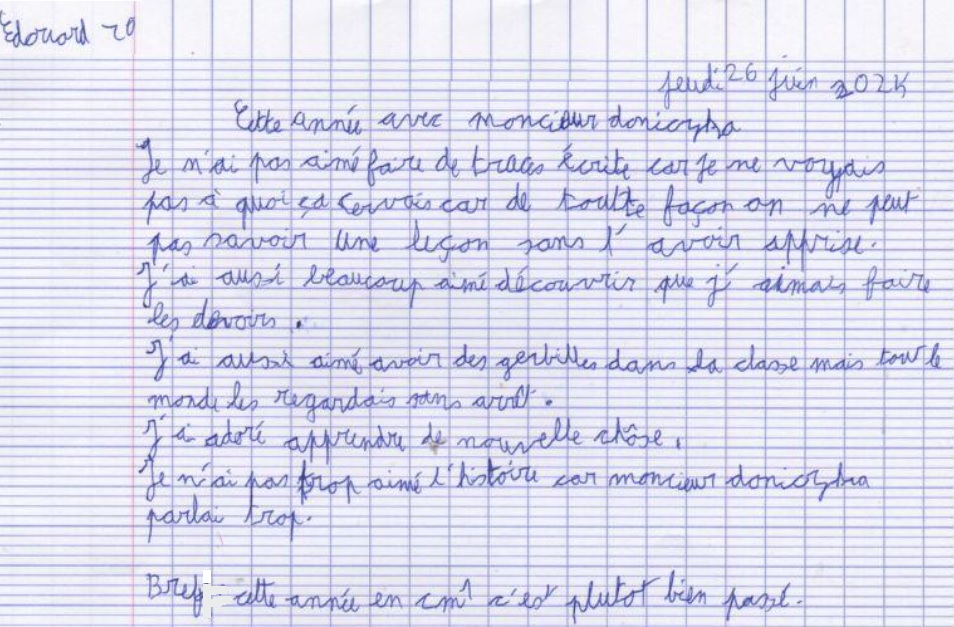 Edouard 20
jeudi 26 juin 2025
Cette année avec moncieur doniczka
Je n'ai pas aimé faire de traces écrite car je ne voyais
pas à quoi ça servais car de toutte façon on ne peut
pas savoir une leçon sans l'avoir apprise.
J'ai aussi beaucoup aimé découvrir que j'aimais faire
les devoirs.
J'ai aussi aimé avoir des gerbilles dans la classe mais tout le
monde les regardais sans arrêt.
J'ai adoré apprendre de nouvelle chôse.
Je n'ai pas trop aimé l'histoire car moncieur doniczka
parlai trop.
Bref cette année en cm1 c'est plutot bien passé.